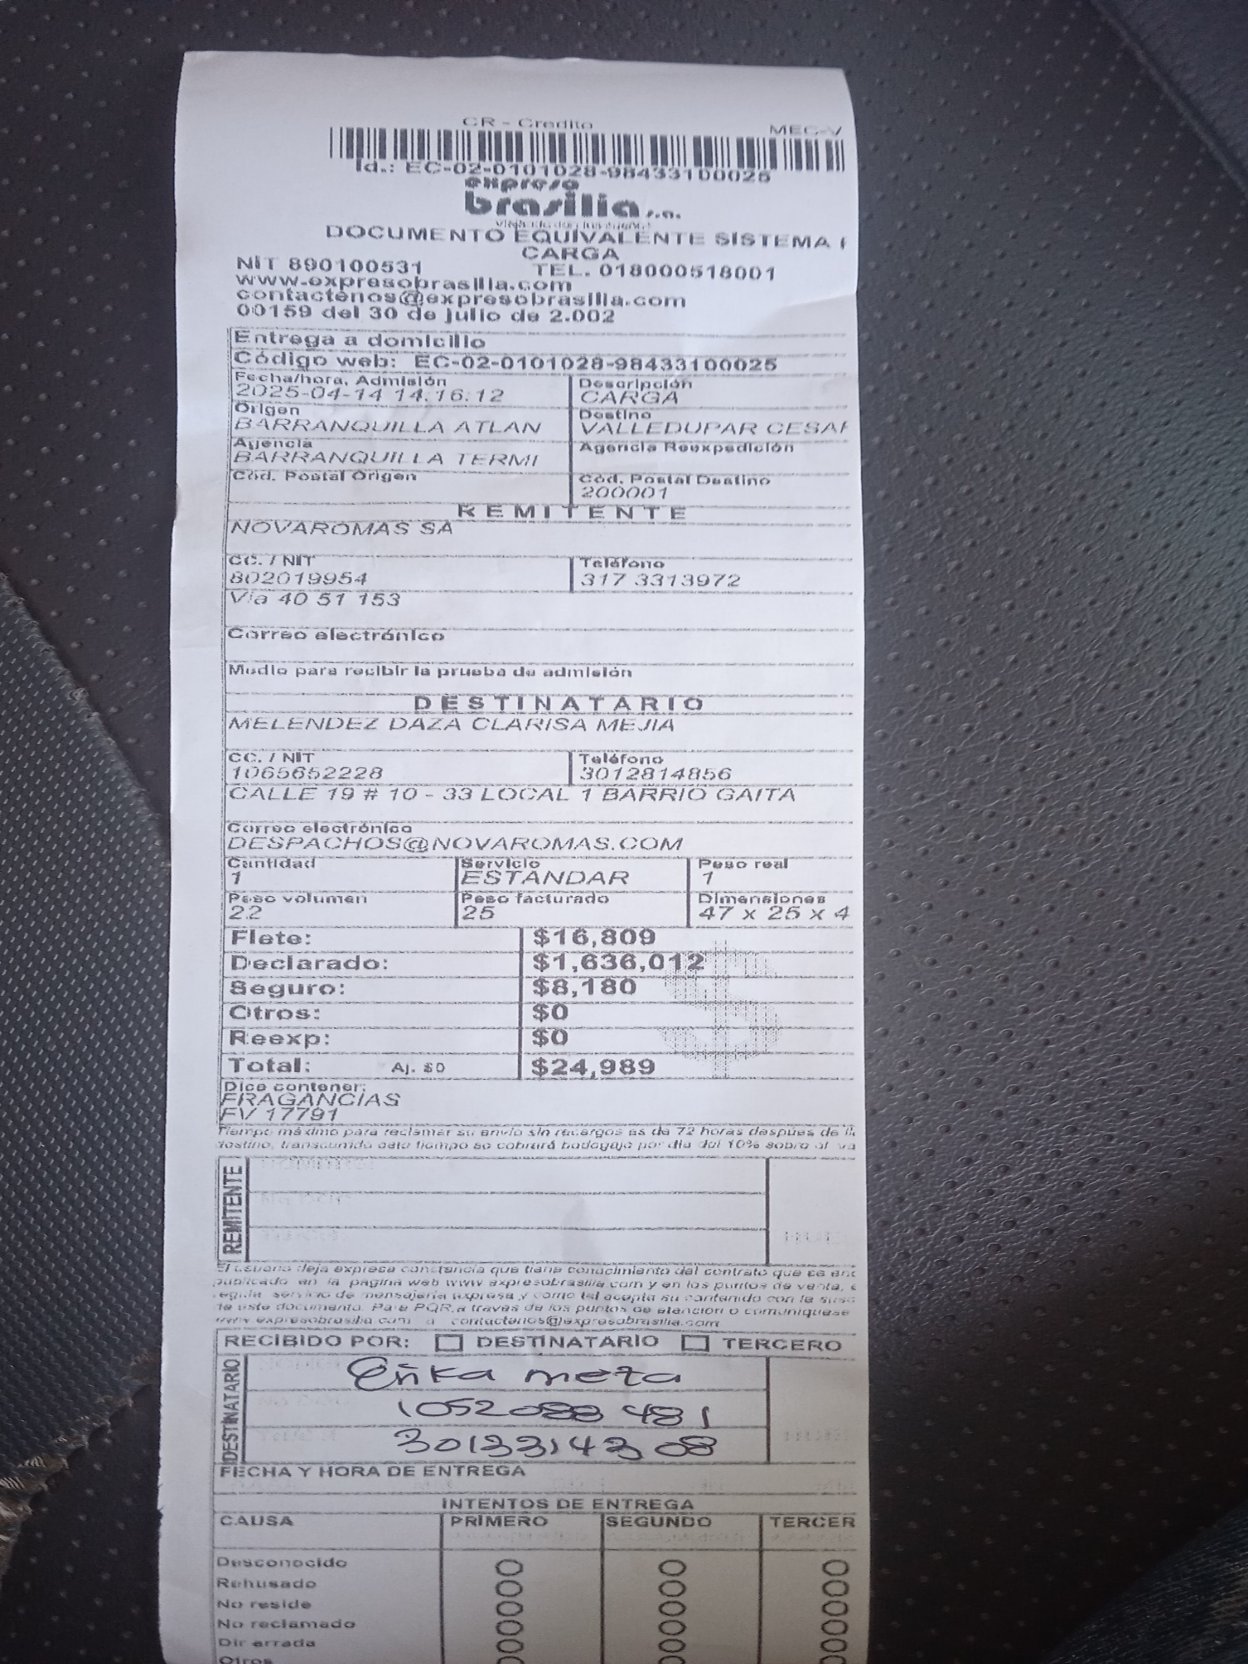 CR - Credito MEC-V
Id.: EC-02-0101028-98433100025
expreso
brasilia s.a.
DOCUMENTO EQUIVALENTE SISTEMA
CARGA
NIT 890100531 TEL. 018000518001
www.expresobrasilia.com
contactenos@expresobrasilia.com
00159 del 30 de julio de 2.002
Entrega a domicilio
Código web: EC-02-0101028-98433100025
Fecha/hora, Admisión Descripción
2025-04-14 14.16.12 CARGA
Origen Destino
BARRANQUILLA ATLAN VALLEDUPAR CESAR
Agencia Agencia Reexpedición
BARRANQUILLA TERMI
Cód. Postal Origen Cód. Postal Destino
200001
REMITENTE
NOVAROMAS SA
CC. / NIT Teléfono
802019954 317 3313972
Vía 40 51 153
Correo electrónico
Medio para recibir la prueba de admisión
DESTINATARIO
MELENDEZ DAZA CLARISA MEJIA
CC. / NIT Teléfono
1065652228 3012814856
CALLE 19 # 10 - 33 LOCAL 1 BARRIO GAITA
Correo electrónico
DESPACHOS@NOVAROMAS.COM
Cantidad Servicio Peso real
1 ESTANDAR 1
Peso volumen Peso facturado Dimensiones
22 25 47 x 25 x 4
Flete: $16,809
Declarado: $1,636,012
Seguro: $8,180
Otros: $0
Reexp: $0
Total: Aj. $0 $24,989
Dice contener:
FRAGANCIAS
FV 17791
Tiempo máximo para reclamar su envío sin recargos es de 72 horas después de
destino, transcurrido este tiempo se cobrará bodegaje por día del 10% sobre el
REMITENTE
El usuario deja expresa constancia que tiene conocimiento del contrato que se
publicado en la página web www.expresobrasilia.com y en los puntos de venta,
regula servicio de mensajería expresa y como tal acepta su contenido con la
de este documento. Para PQR a través de los puntos de atención o comuníquese
www.expresobrasilia.com a contactenos@expresobrasilia.com
RECIBIDO POR: DESTINATARIO TERCERO
DESTINATARIO
Erika meza
1052088481
3013314308
FECHA Y HORA DE ENTREGA
INTENTOS DE ENTREGA
CAUSA PRIMERO SEGUNDO TERCER
Desconocido
Rehusado
No reside
No reclamado
Dir errada
Otros